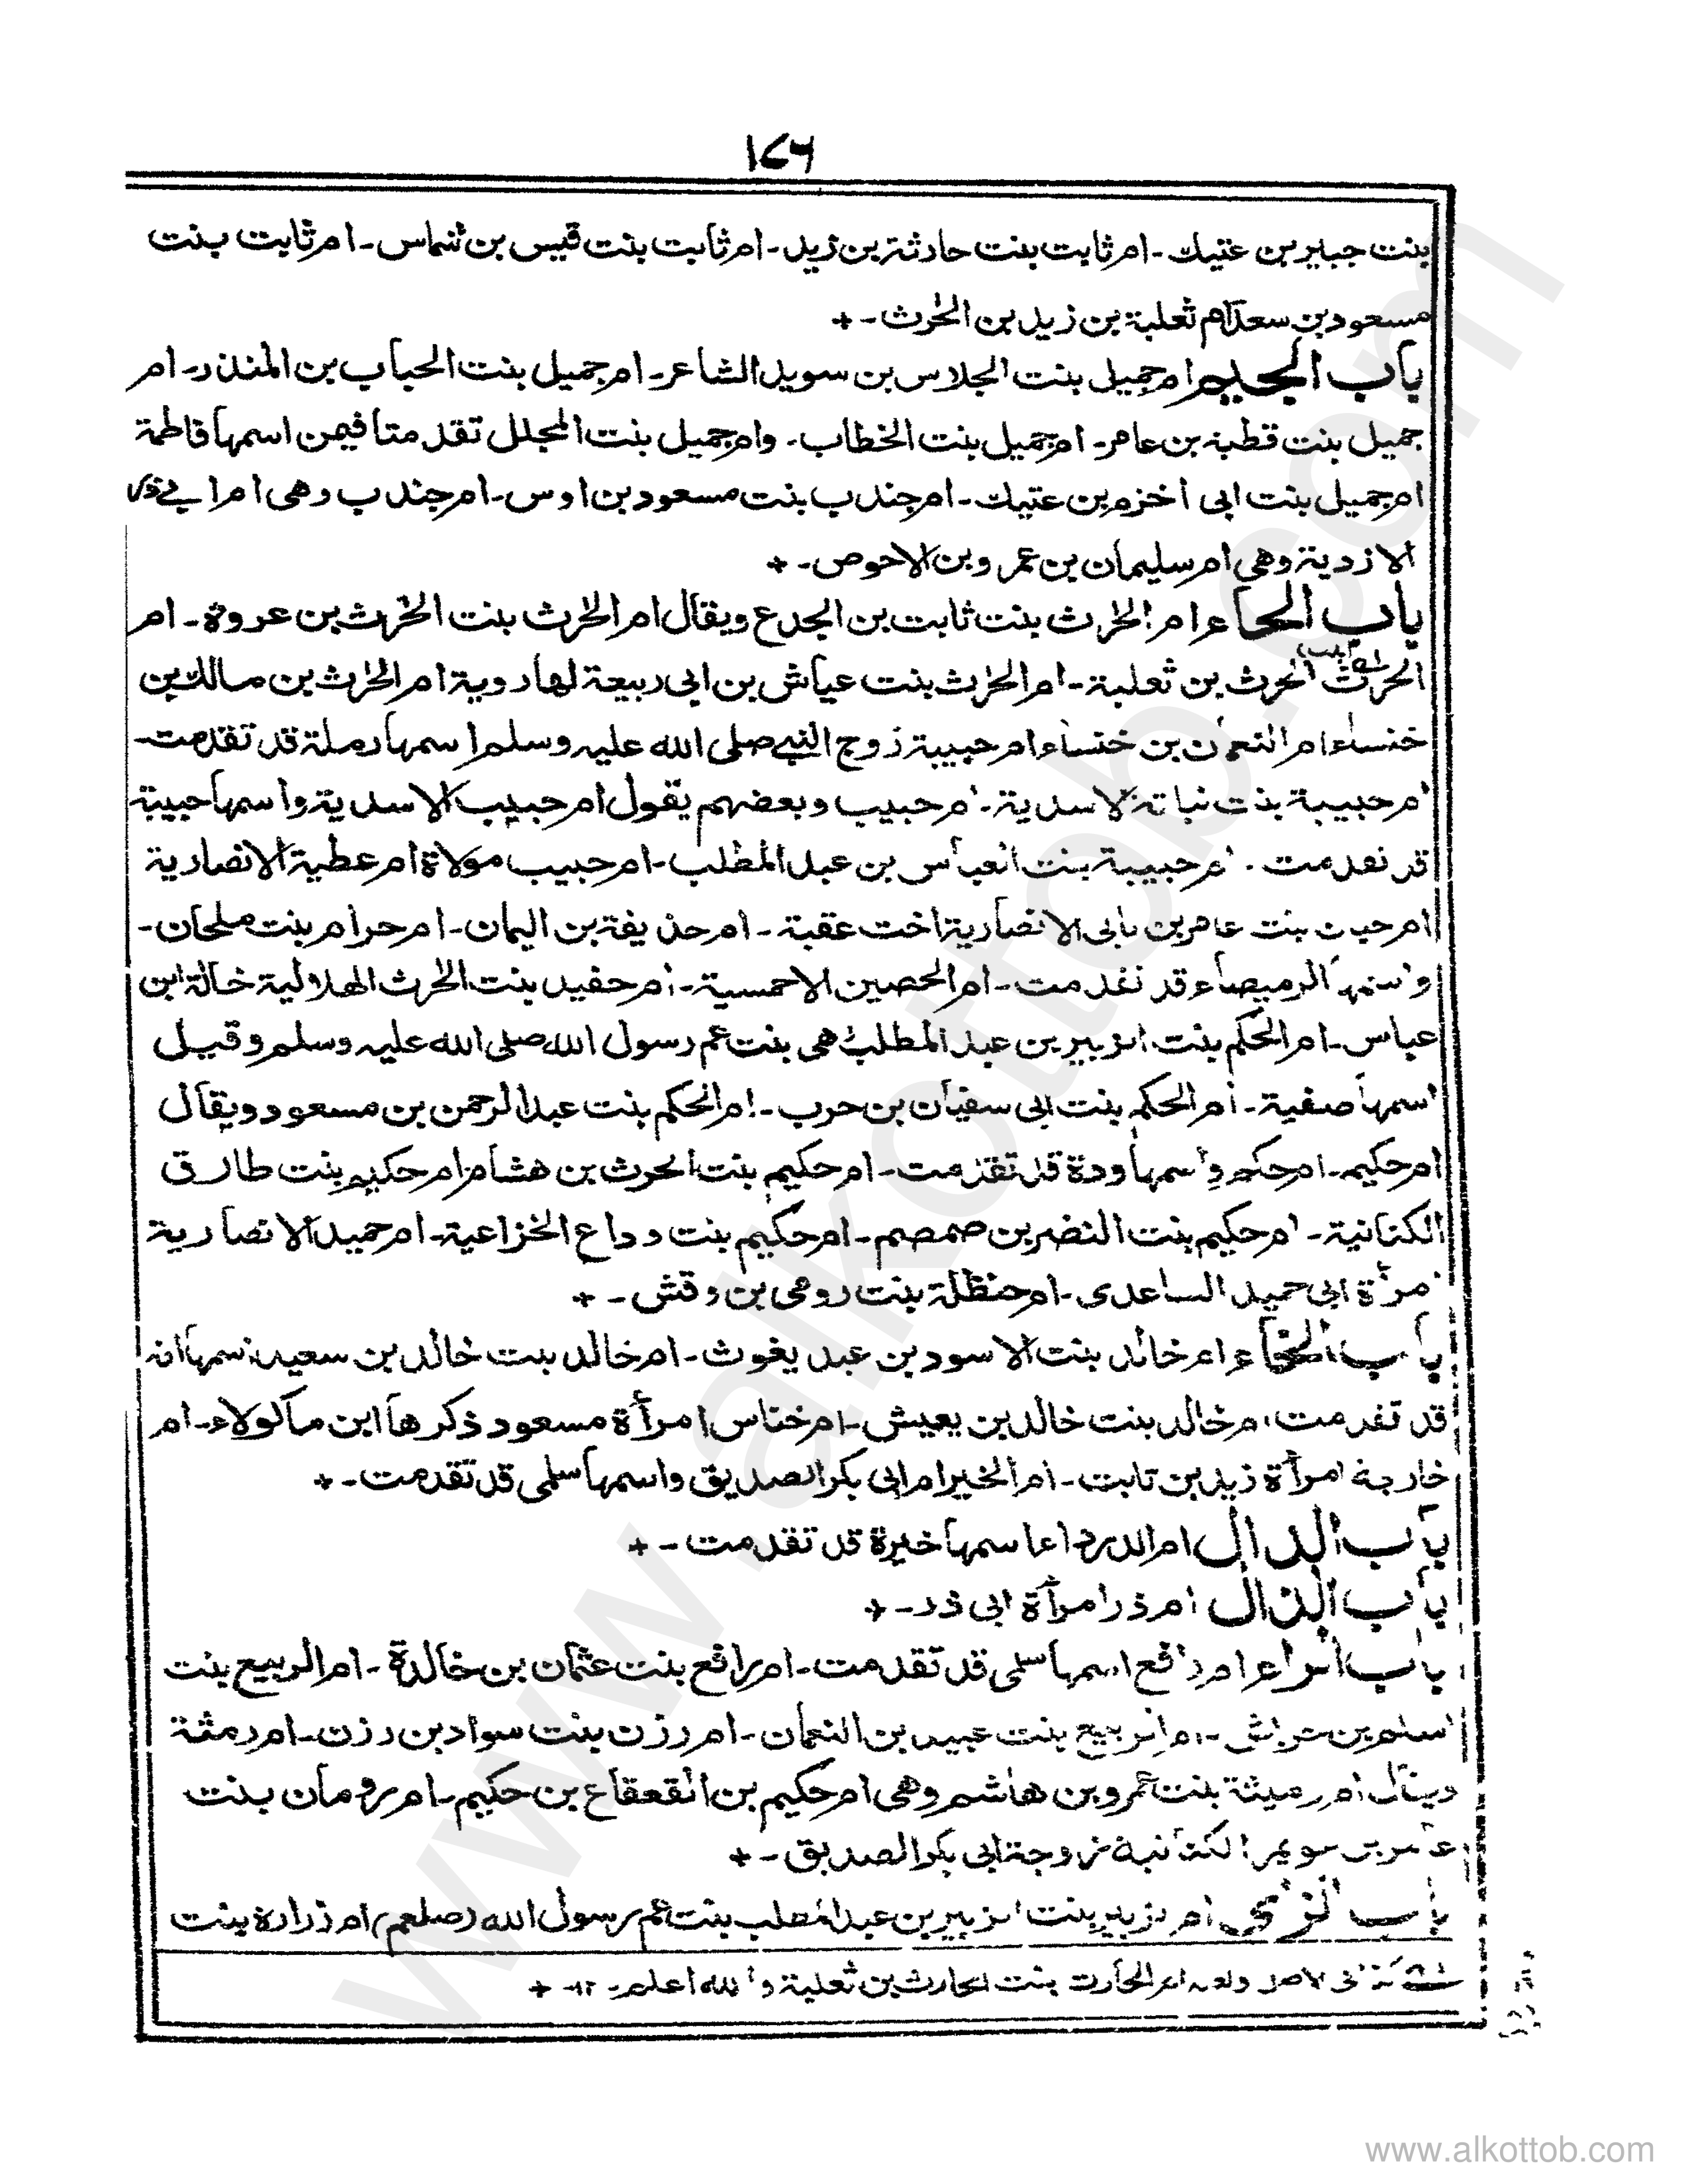 ١٧٦
بنت جبير بن عتيك - ام ثابت بنت حارثة بن زيد - ام ثابت بنت قيس بن شماس - ام ثابت بنت
مسعود بن سعد ام ثعلبة بن زيد بن الحرث - +
باب الجيم ام جميل بنت الجلاس بن سويد الشاعر - ام جميل بنت الحباب بن المنذر - ام
جميل بنت قطبة بن عامر - ام جميل بنت الخطاب - وام جميل بنت المجلل تقدمتا فيمن اسمها فاطمة
ام جميل بنت ابى اخزم بن عتيك - ام جندب بنت مسعود بن اوس - ام جندب وهى ام ابي ذر
الازدية وهى ام سليمان بن عمرو بن الاحوص - +
باب الحاء ام الحرث بنت ثابت بن الجدع ويقال ام الحرث بنت الحرث بن عروة - ام
الحرث الحرث بن ثعلبة - ام الحرث بنت عياش بن ابى ربيعة لها روية ام الحرث بن مالك بن
خنساء ام النعمان بن خنساء ام حبيبة زوج النبي صلى الله عليه وسلم اسمها رملة قد تقدمت -
ام حبيبة بنت نباتة الاسدية - ام حبيب وبعضهم يقول ام حبيب الاسدية واسمها حبيبة
قد تقدمت - ام حبيبة بنت العباس بن عبد المطلب - ام حبيب مولاة ام عطية الانصارية
ام حبان بنت عامر بن نابى الانصارية اخت عقبة - ام حذيفة بن اليمان - ام حرام بنت ملحان -
واسمها الرميصاء قد تقدمت - ام الحصين الاحمسية - ام حفيد بنت الحرث الهلالية خالة ابن
عباس - ام الحكم بنت الزبير بن عبد المطلب هى بنت عم رسول الله صلى الله عليه وسلم وقيل
اسمها صفية - ام الحكم بنت ابى سفيان بن حرب - ام الحكم بنت عبد الرحمن بن مسعود ويقال
ام حكيم - ام حكيم واسمها ودة قد تقدمت - ام حكيم بنت الحرث بن هشام ام حكيم بنت طارق
الكنانية - ام حكيم بنت النضر بن ضمضم - ام حكيم بنت وداع الخزاعية - ام حميد الانصارية
امرأة ابى حميد الساعدى - ام حنظلة بنت رومى بن وقش - +
باب الخاء ام خالد بنت الاسود بن عبد يغوث - ام خالد بنت خالد بن سعيد اسمها امة
قد تقدمت ام خالد بنت خالد بن يعيش - ام خناس امرأة مسعود ذكرها ابن ماكولاء - ام
خارجة امرأة زيد بن ثابت - ام الخير ام ابى بكر الصديق واسمها سلمى قد تقدمت - +
باب الدال ام الدرداء اسمها خيرة قد تقدمت - +
باب الذال ام ذر امرأة ابى ذر - +
باب الراء ام رافع اسمها سلمى قد تقدمت - ام رافع بنت عثمان بن خالدة - ام الربيع بنت
اسلم بن حراش - ام الربيع بنت عبيد بن النعمان - ام رزن بنت سواد بن رزن - ام رمثة
ويقال ام رميثة بنت عمرو بن هاشم وهى ام حكيم بن القعقاع بن حكيم - ام رومان بنت
عامر بن عويمر الكنانية زوجة ابى بكر الصديق - +
باب الزاى ام زبير بنت الزبير بن عبد المطلب بنت عم رسول الله (صلعم) ام زرارة بنت
كذا فى الاصل ولعله ام الحارث بنت الحارث بن ثعلبة والله اعلم - ١٢ - +
www.alkottob.com
www.alkottob.com